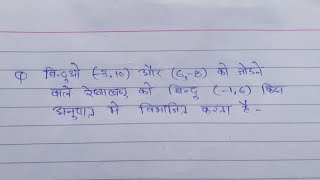 Q बिन्दुओ (-3,10) और (6,-8) को जोडने
वाले रेखाखण्ड को बिन्दु (-1,6) किस
अनुपात मे विभाजित करता है -